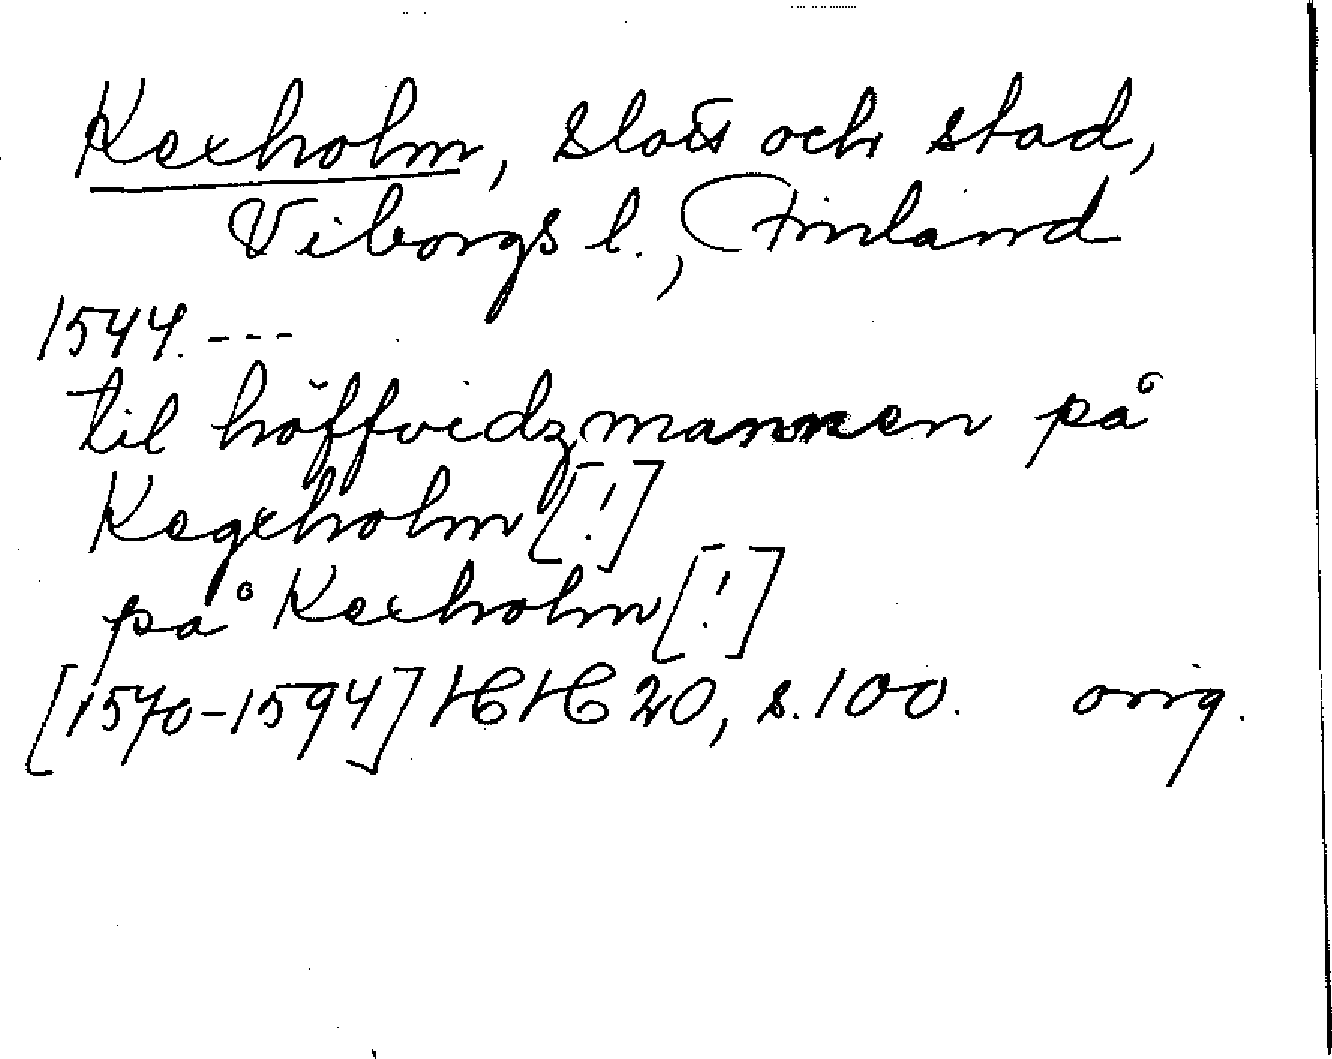 Kexholm, slott och stad,
Viborgs l., Finland
1544. ---
til höffvidzmannen på
Kegxholm [!]
på Kexholm [!]
[1570-1594] HH 20, s. 100. orig.